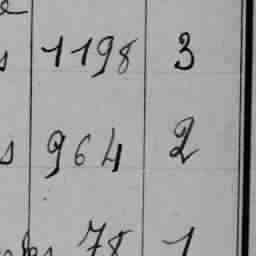 1198 3
964 2
78 1